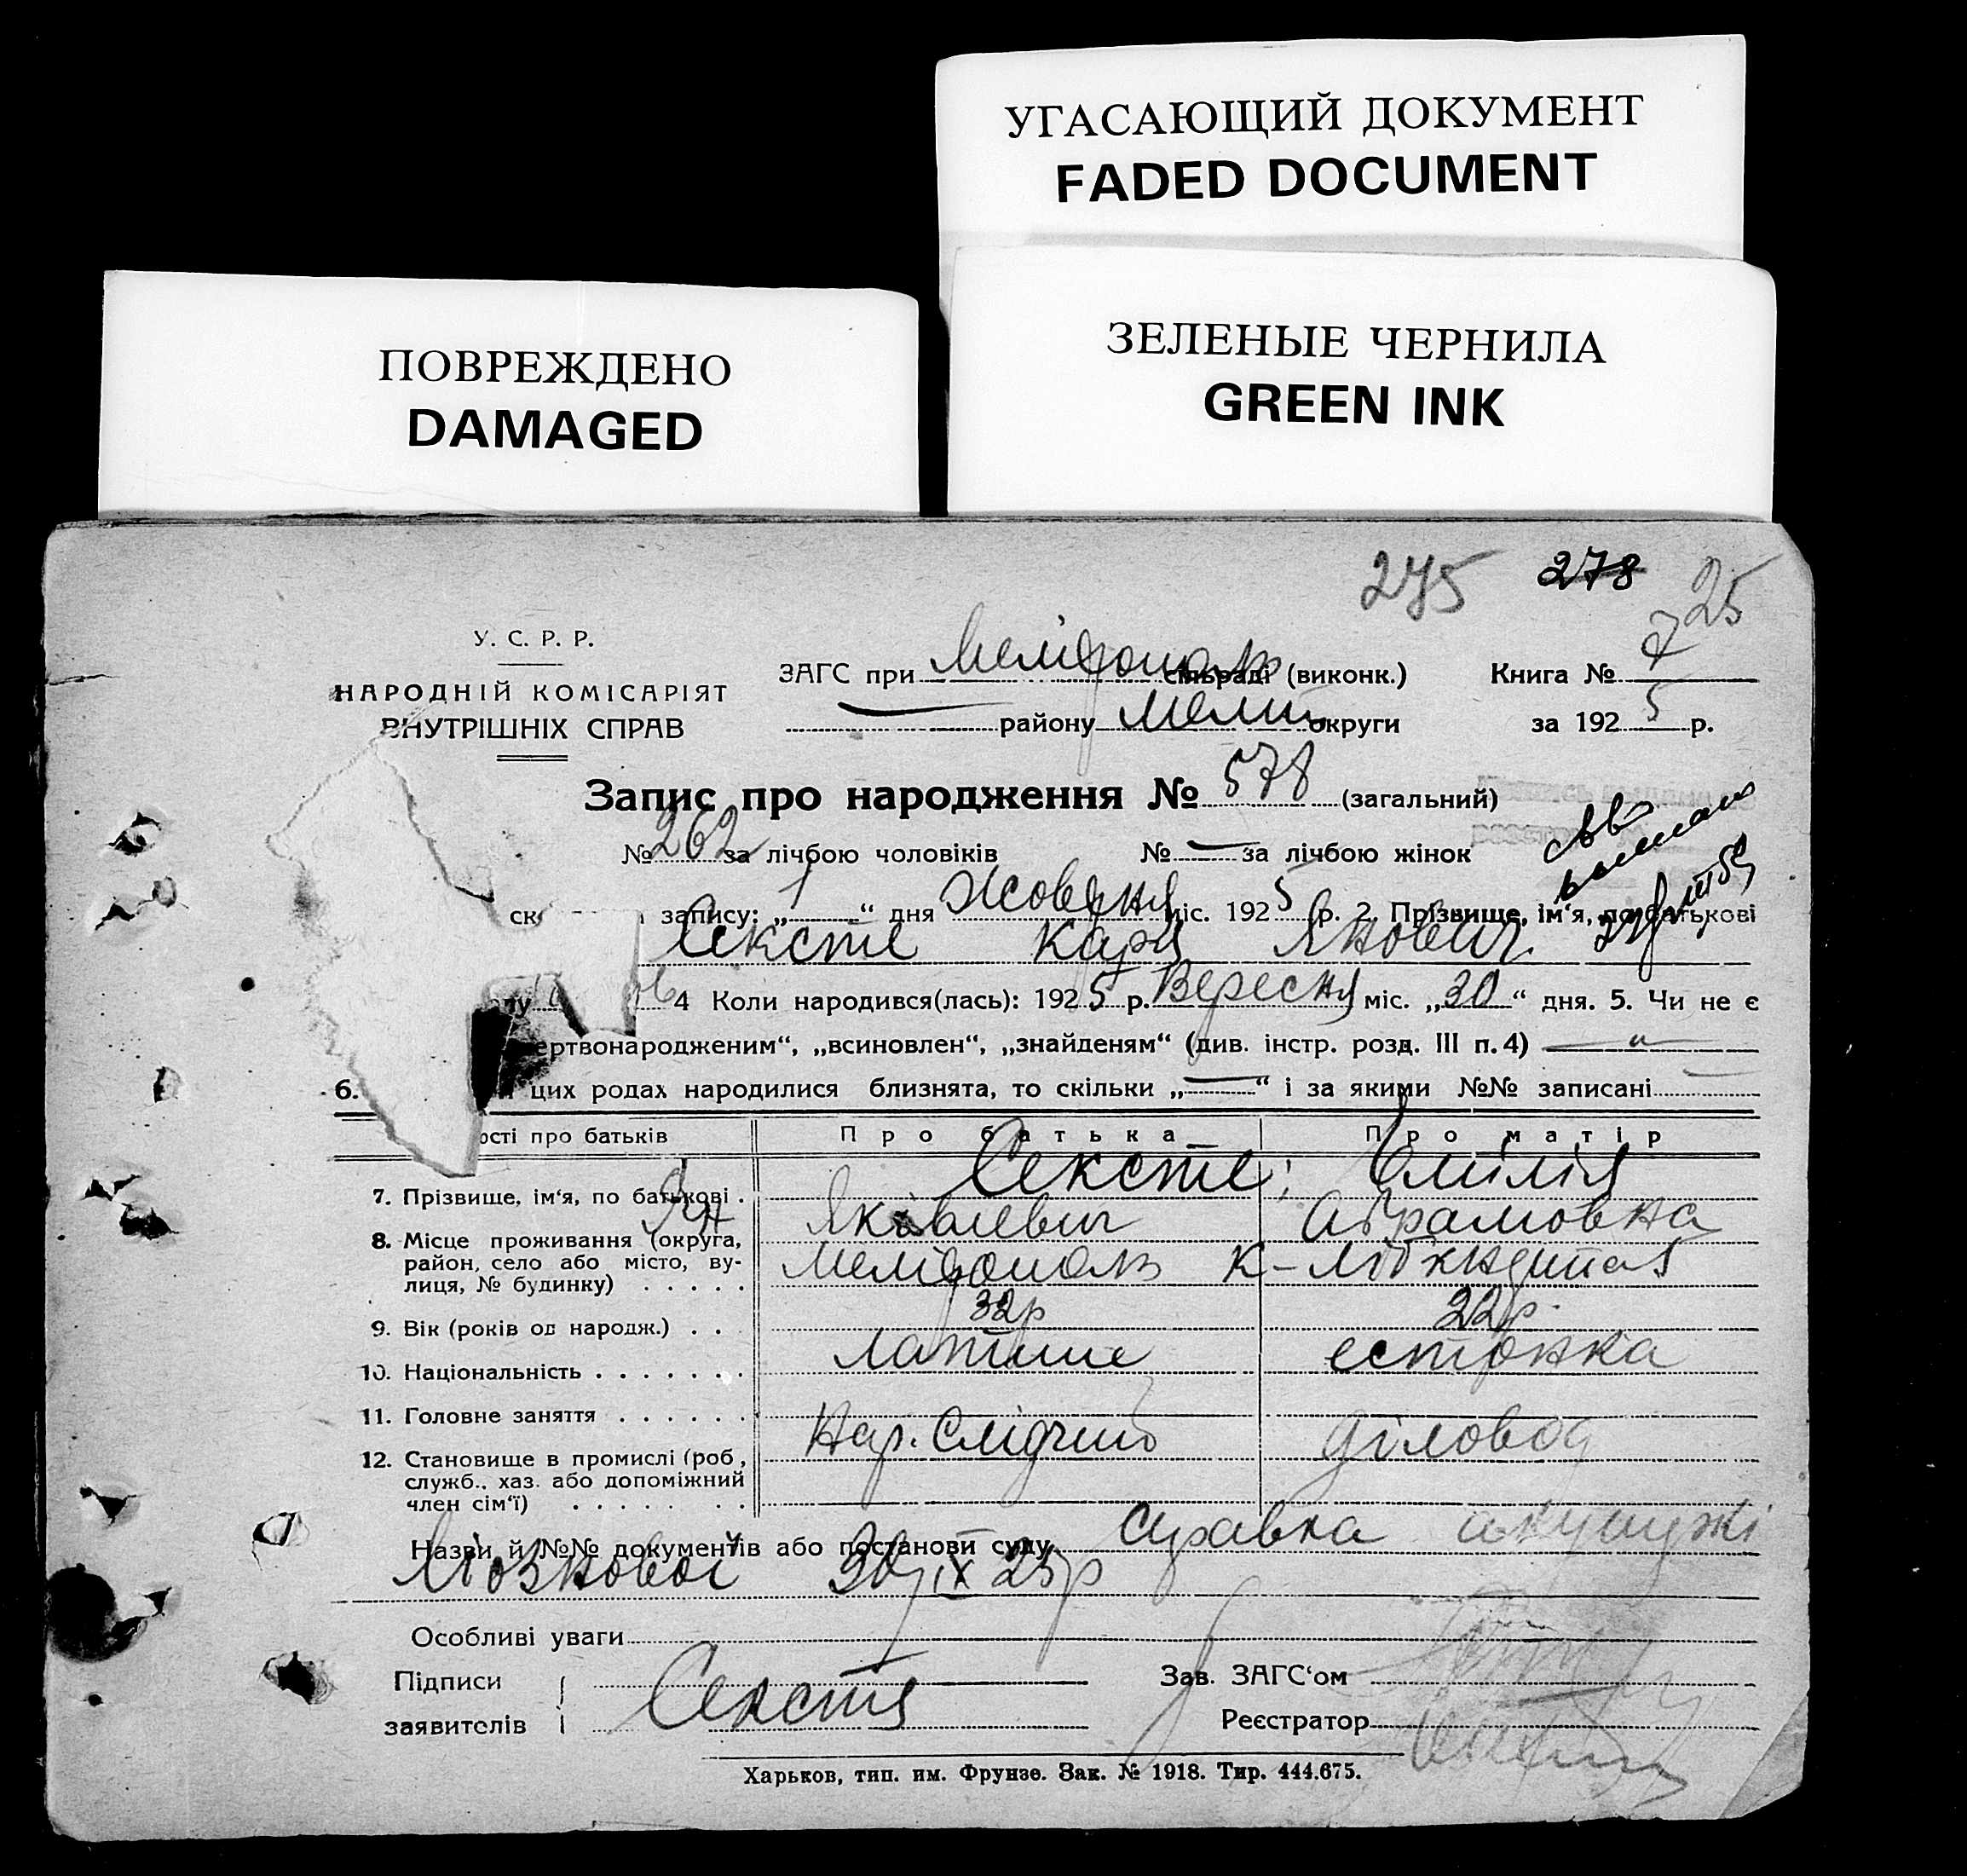 УГАСАЮЩИЙ ДОКУМЕНТ
FADED DOCUMENT
ПОВРЕЖДЕНО
DAMAGED
ЗЕЛЕНЫЕ ЧЕРНИЛА
GREEN INK
275 278 25
У. С. Р. Р.
НАРОДНІЙ КОМІСАРІЯТ
ВНУТРІШНІХ СПРАВ
ЗАГС при Мелітополь сільраді (виконк.) Книга № 7
району Меліт округи за 1925 р.
Запис про народження № 578 (загальний)
№ 262 за лічбою чоловіків № — за лічбою жінок
запису: „1“ дня Жовтня міс. 1925 р. 2. Прізвище, ім‘я, по батькові
Сексте Карл Янович
4 Коли народився(лась): 1925 р. Вересня міс. „30“ дня. 5. Чи не є
ертвонародженим“, „всиновлен“, „знайденям“ (див. інстр. розд. III п. 4) —
6. цих родах народилися близнята, то скільки „—“ і за якими №№ записані
ості про батьків Про батька Про матір
7. Прізвище, ім‘я, по батькові . Сексте; Емілія
Ян Яківлевич Абрамовна
8. Місце проживання (округа, район, село або місто, вулиця, № будинку) . . . . . Мелітополь
9. Вік (років од народж.) . . 32р 22р.
10. Національність . . . . . . . Латиш естонка
11. Головне заняття . . . . . . Нар. Слідчий діловод
12. Становище в промислі (роб, служб.. хаз. або допоміжний член сім‘ї) . . . . . . . .
Назви й №№ документів або постанови суду справка акушерки
30/IX 25р
Особливі уваги
Підписи Зав. ЗАГС‘ом
заявителів Сексте Реєстратор
Харьков, тип. им. Фрунзе. Зак. № 1918. Тир. 444.675.